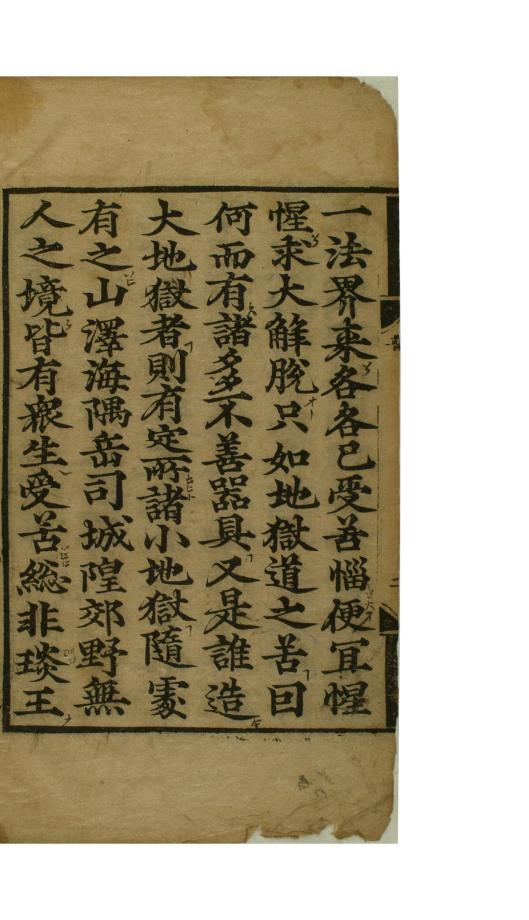 一法界来各各已受苦惱便冝惺
惺求大解脫只如地獄道之苦曰
何而有諸多多不善器具又是誰造
大地獄者則有定所諸小地獄隨處
有之山澤海隅岳司城隍郊野無
人之境皆有衆生受苦総非琰王